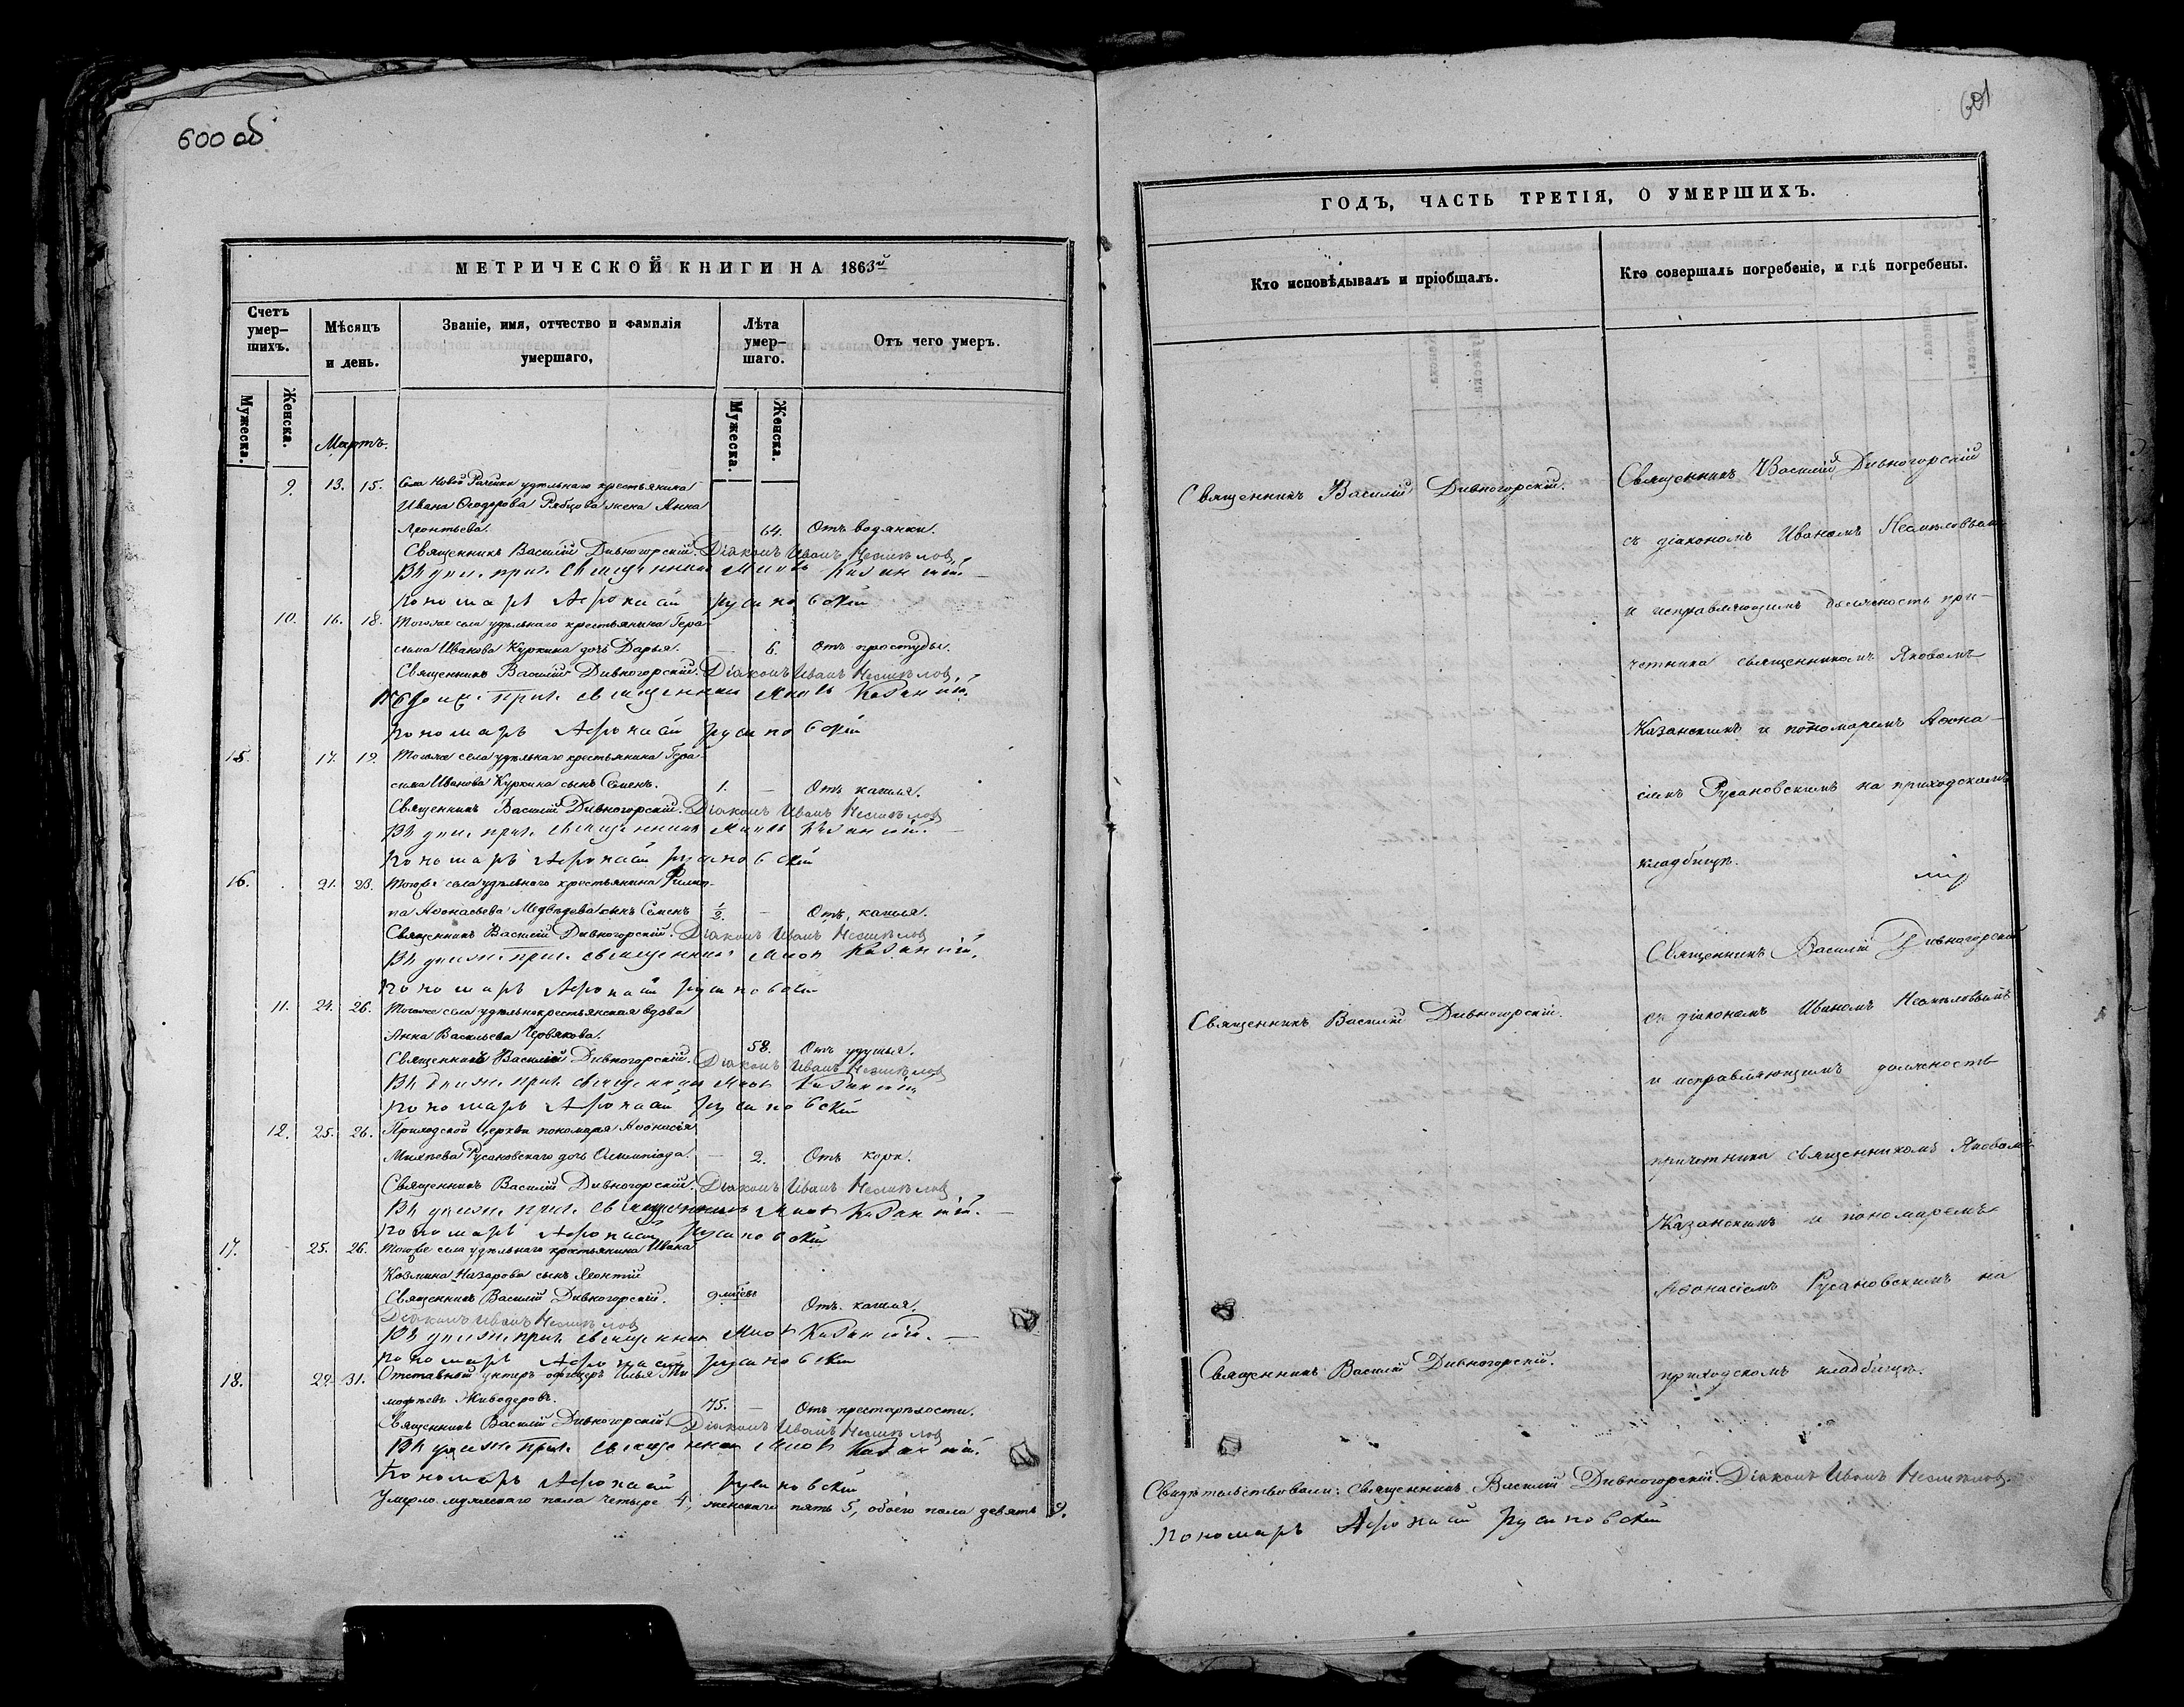 600 об
МЕТРИЧЕСКОЙ КНИГИ НА 1863й
Счетъ умер-шихъ.
Мѣсяцъ и день.
Званіе, имя, отчество и фамилія умершаго,
Лѣта умер-шаго.
Отъ чего умеръ.
Мужеска.
Женска.
Мужеска.
Женска.
Мартъ.
9. 13. 15. Села Новой Рачейки удѣльнаго крестьянина
Ивана Ѳеодорова Рябцова жена Анна
Леонтьева. — 64. Отъ водянки.
Священникъ Василій Дивногорскій. Діаконъ Иванъ Несмѣловъ
священникъ Казанскій.
Пономарь Афонасій Русановскій
10. 16. 18. Тогоже села удѣльнаго крестьянина Гера-
сима Иванова Куркина дочь Дарья. — 6. Отъ простуды.
Священникъ Василій Дивногорскій. Діаконъ Иванъ Несмѣловъ
священникъ Казанскій.
Пономарь Афонасій Русановскій
15. 17. 19. Тогоже села удѣльнаго крестьянина Гера-
сима Иванова Куркина сынъ Семенъ. 1. — Отъ кашля.
Священникъ Василій Дивногорскій. Діаконъ Иванъ Несмѣловъ
священникъ Казанскій.
Пономарь Афонасій Русановскій
16. 21. 23. Тогоже села удѣльнаго крестьянина Филип-
па Аѳонасьева Медвѣдева сынъ Семенъ 1/2. — Отъ кашля.
Священникъ Василій Дивногорскій. Діаконъ Иванъ Несмѣловъ
священникъ Казанскій.
Пономарь Афонасій Русановскій
11. 24. 26. Тогоже села удѣльнокрестьянская вдова
Анна Васильева Червякова. 58. Отъ удушья.
Священникъ Василій Дивногорскій. Діаконъ Иванъ Несмѣловъ
священникъ Казанскій
Пономарь Афонасій Русановскій
12. 25. 26. Приходской Церкви пономаря Аѳонасія
Русановскаго дочь Олимпіада. — 2. Отъ кори.
Священникъ Василій Дивногорскій. Діаконъ Иванъ Несмѣловъ
священникъ Казанскій.
Пономарь Афонасій Русановскій
17. 25. 26. Тогоже села удѣльнаго крестьянина Ивана
Козмина Назарова сынъ Леонтій
Священникъ Василій Дивногорскій. 9 Отъ кашля.
Діаконъ Иванъ Несмѣловъ
священникъ Казанскій.
Пономарь Афонасій Русановскій
18. 29. 31. Отставный унтеръ офицеръ Илья Ти-
мофѣевъ Живодеровъ. 75. — Отъ престарѣлости.
Священникъ Василій Дивногорскій. Діаконъ Иванъ Несмѣловъ
священникъ Казанскій.
Пономарь Афонасій Русановскій
Умерло мужескаго пола четыре 4, женскаго пять 5, обоего пола девять 9.
601
ГОДЪ, ЧАСТЬ ТРЕТІЯ, О УМЕРШИХЪ.
Кто исповѣдывалъ и пріобщалъ.
Кто совершалъ погребеніе, и гдѣ погребены.
Священникъ Василій Дивногорскій.
Священникъ Василій Дивногорскій
съ діакономъ Иваномъ Несмѣловымъ
и исправляющимъ должность при-
четника священникомъ Яковомъ
Казанскимъ и пономаремъ Аѳона-
сіемъ Русановскимъ на приходскомъ
кладбищѣ.
Священникъ Василій Дивногорскій.
Священникъ Василій Дивногорскій
съ діакономъ Иваномъ Несмѣловымъ
и исправляющимъ должность
причетника священникомъ Яковомъ
Казанскимъ и пономаремъ
Аѳонасіемъ Русановскимъ на
приходскомъ кладбищѣ.
Священникъ Василій Дивногорскій.
Свидѣтельствовали: священникъ Василій Дивногорскій. Діаконъ Иванъ Несмѣловъ.
Пономарь Афонасій Русановскій